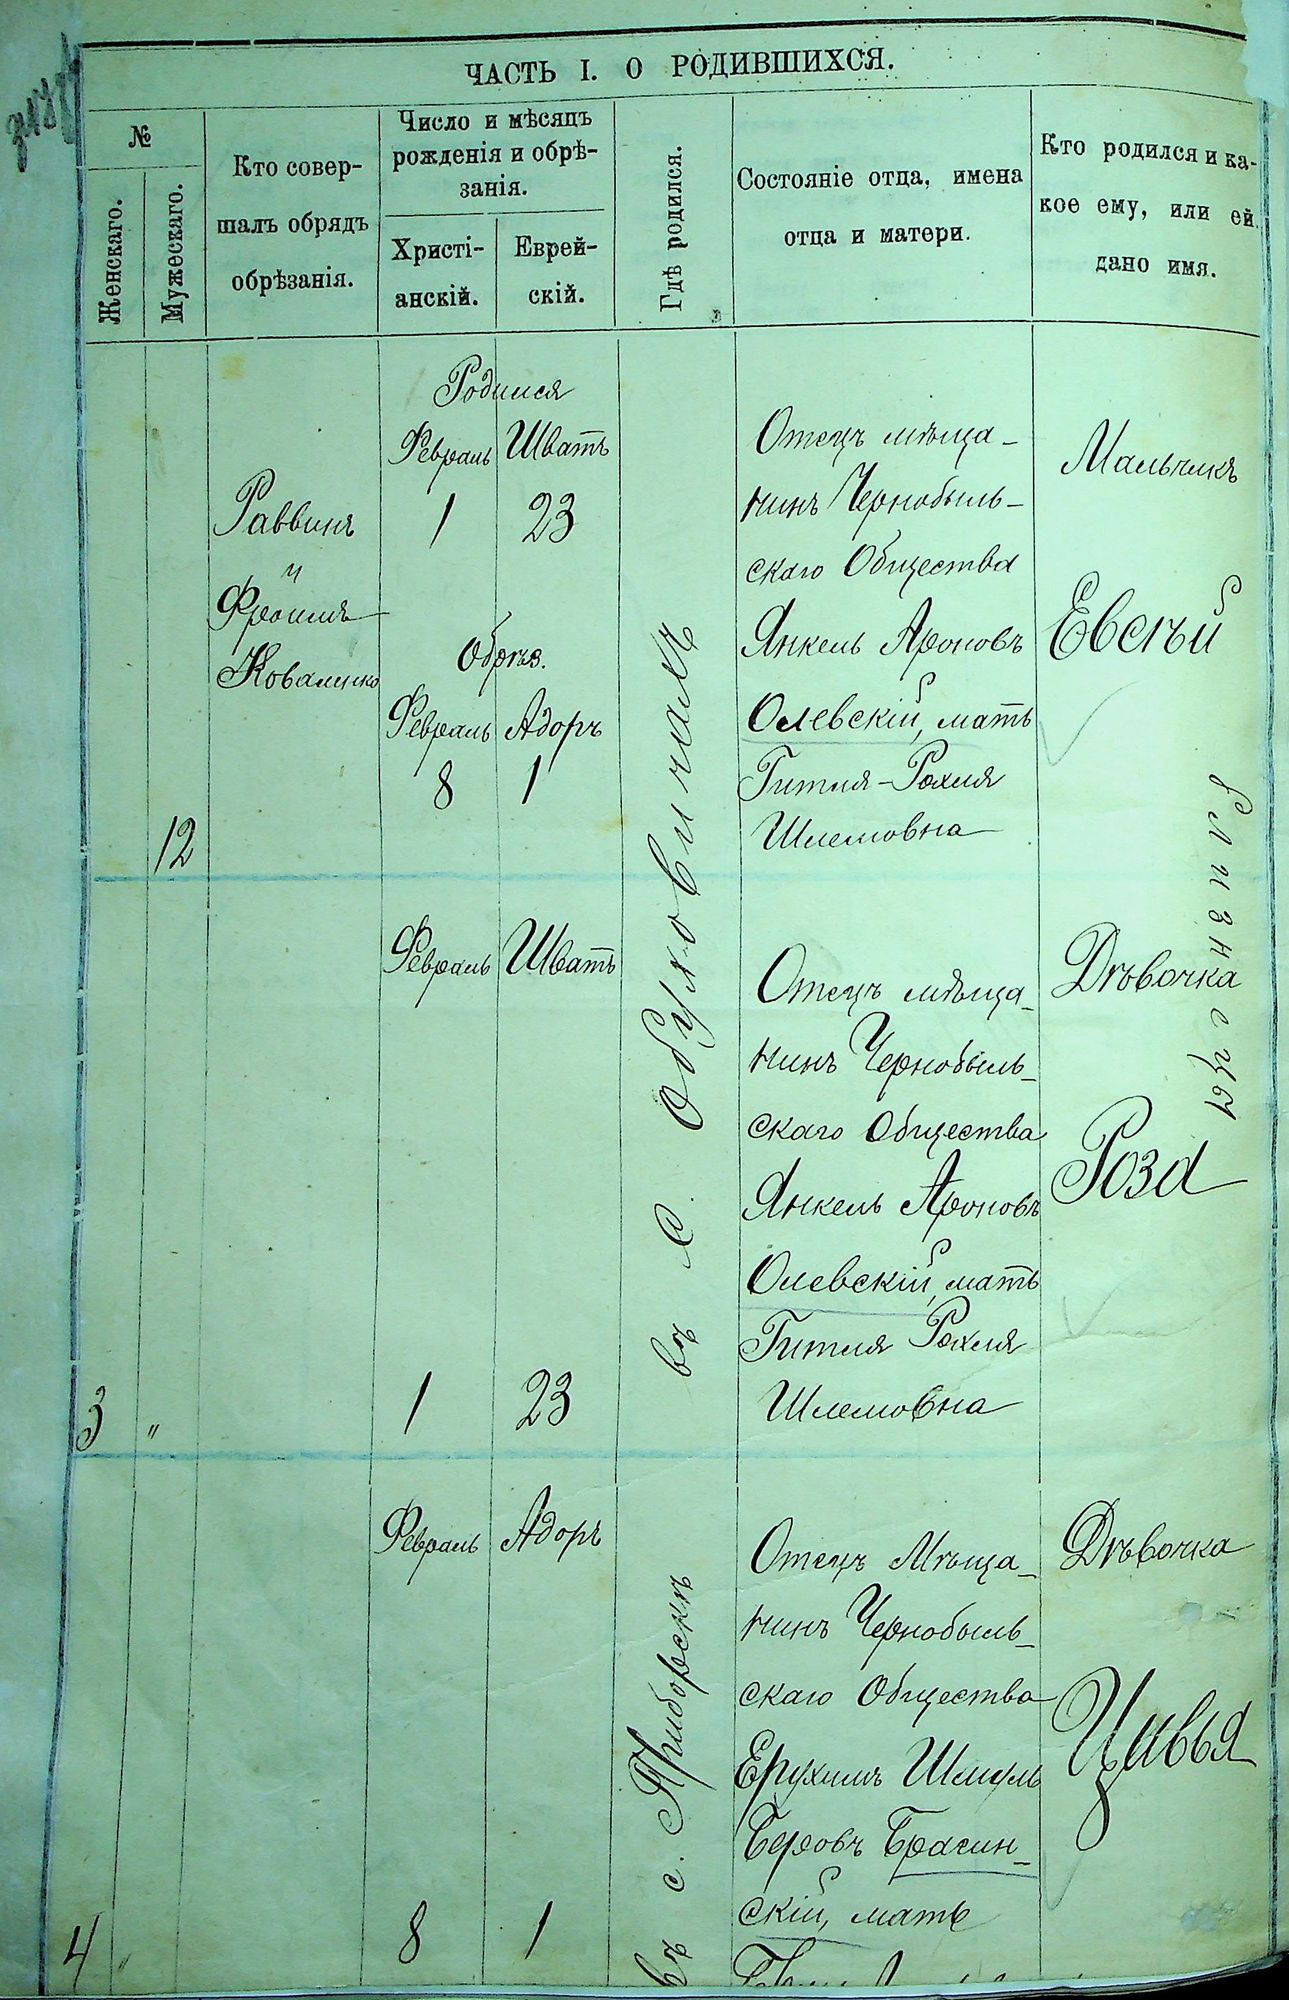 ЧАСТЬ I. О РОДИВШИХСЯ.
№
Женскаго.
Мужескаго.
Кто совер-
шалъ обрядъ
обрѣзанія.
Число и мѣсяцъ
рожденія и обрѣ-
занія.
Христі-
анскій.
Еврей-
скій.
Гдѣ родился.
Состояніе отца, имена
отца и матери.
Кто родился и ка-
кое ему, или ей
дано имя.
12
Раввинъ
и
Фроимъ
Коваленко
Родился
Февраль Шватъ
1 23
Обрѣз.
Февраль Адоръ
8 1
въ м. Обуховичахъ
Отецъ мѣща-
нинъ Чернобыль-
скаго Общества
Янкель Ароновъ
Олевскій, мать
Гитля-Рохля
Шлемовна
Мальчикъ
Евсѣй
Близнецы
3 "
Февраль Шватъ
1 23
Отецъ мѣща-
нинъ Чернобыль-
скаго Общества
Янкель Ароновъ
Олевскій, мать
Гитля Рохля
Шлемовна
Дѣвочка
Роза
4 "
Февраль Адоръ
8 1
въ с. Приборскѣ
Отецъ Мѣща-
нинъ Чернобыль-
скаго Общества
Ерухимъ Шмуль
Беровъ Брагин-
скій, мать
Дѣвочка
Цивья